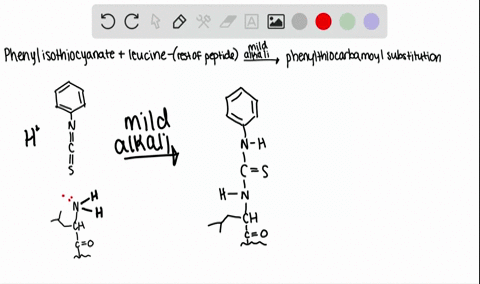 Phenylisothiocyanate + leucine-(rest of peptide) mild alkali → phenylthiocarbamoyl substitution
H⁺
N
C
S
mild
alkali
N-H
C=S
H-N
CH
C=O
N
H
H
CH
C=O
A